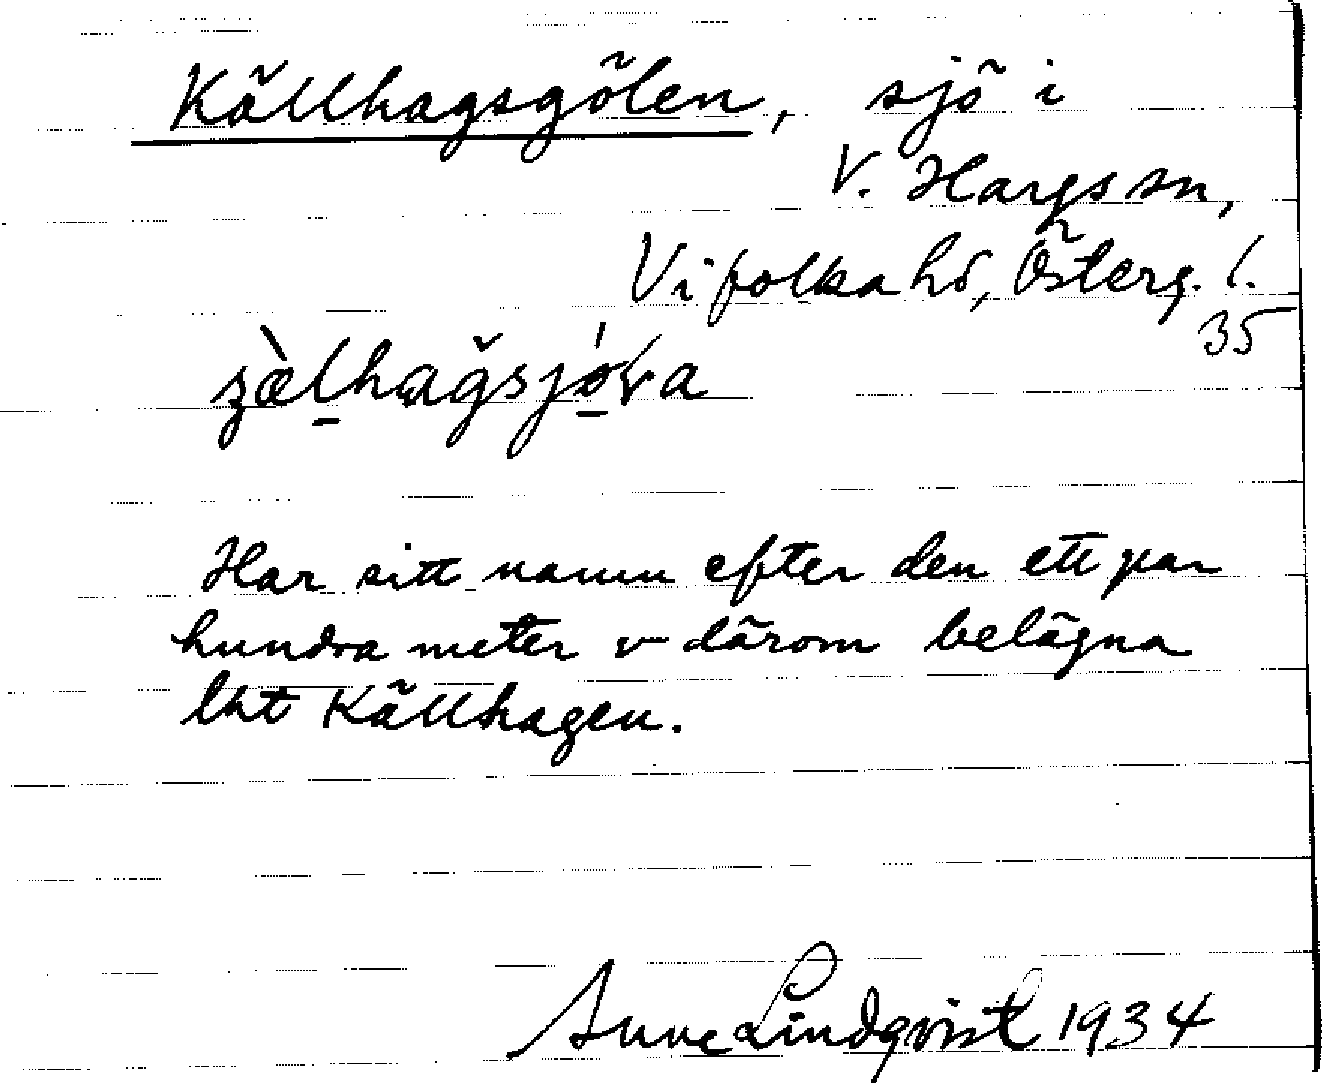 Källhagsgölen, sjö i
V. Hargs sn,
Vifolka hd, Österg. l.
35
Har sitt namn efter den ett par
hundra meter v därom belägna
lht Källhagen.
Sune Lindqvist 1934